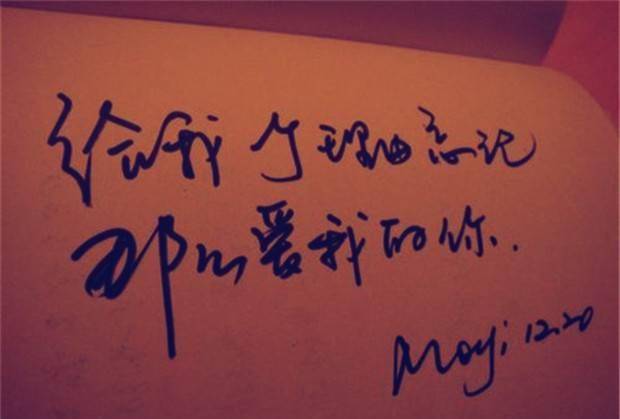 给我个理由忘记
那么爱我的你.
Moyi 12.20